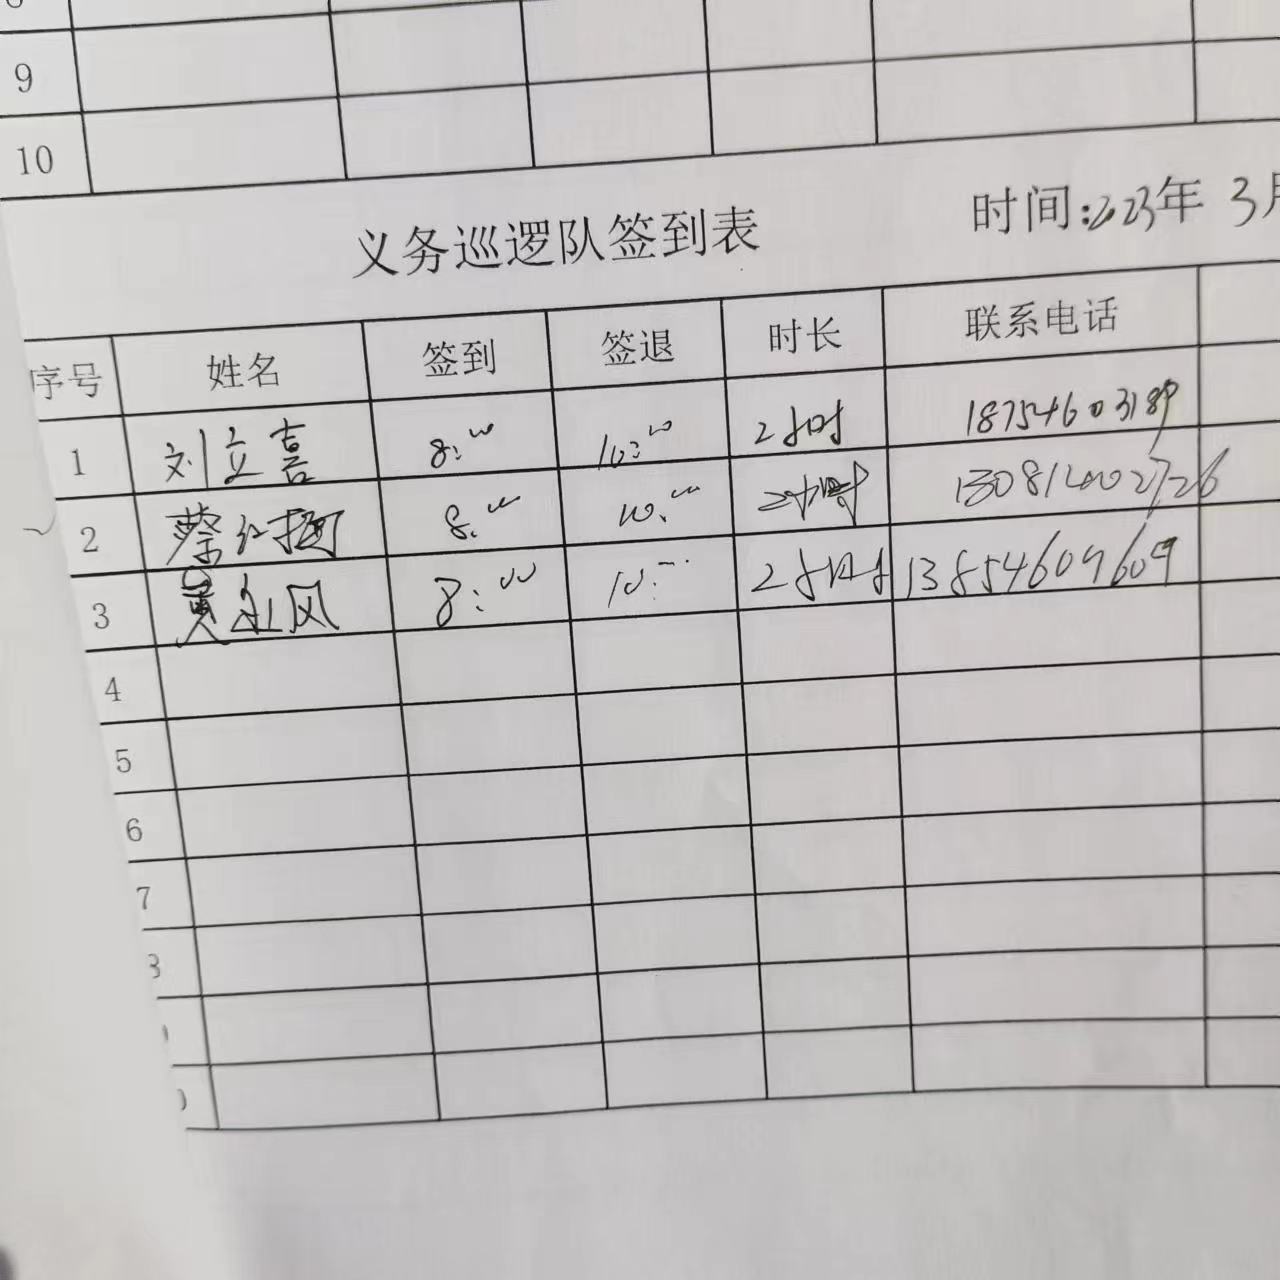 9
10
义务巡逻队签到表 时间:2023年 3月
序号 姓名 签到 签退 时长 联系电话
1 刘立喜 8:00 10:00 2小时 18754603189
2 蔡红梅 8:00 10:00 2小时
3 黄永风 8:00 10:00 2小时 13854609609
4
5
6
7